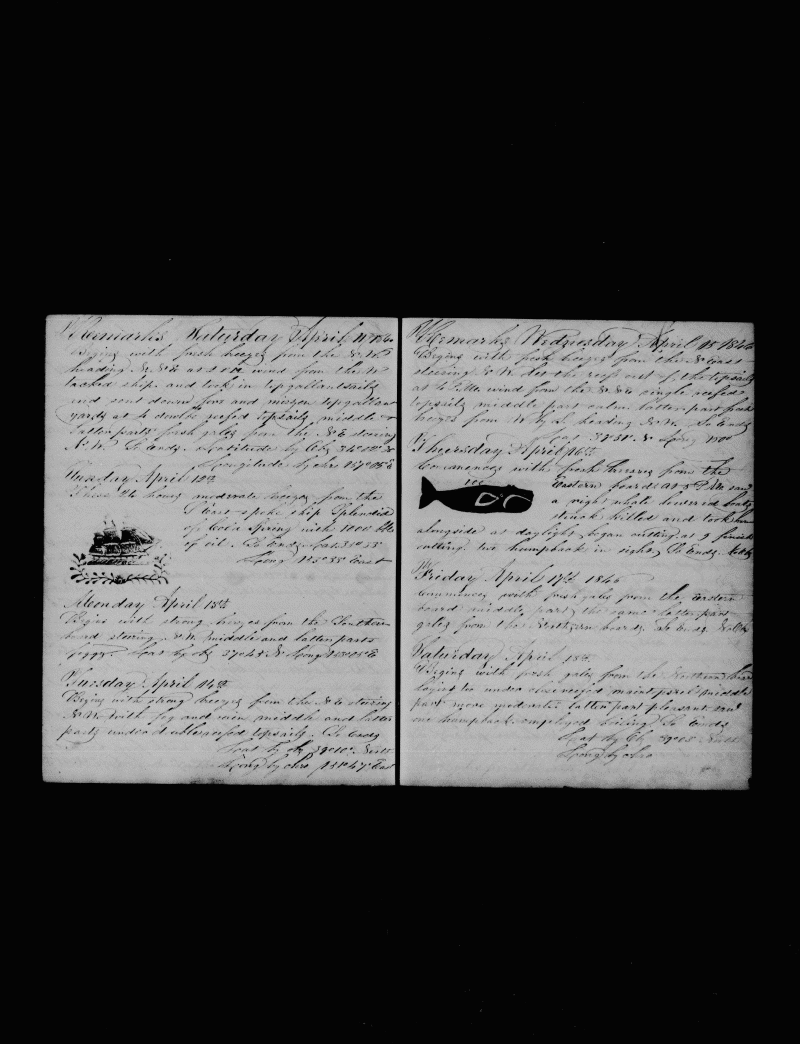 Remarks Saturday April 11th 1846
Begins with fresh breezes from the N.W.
heading N. NE at 2 PM wind from the N
tacked ship and took in topgallantsails
and sent down fore and mizen topgallant
yards at 4 double reefed topsails middle &
latter parts fresh gales from the NE steering
N.W. So Ends. Latitude by Obs
Longitude by chro
Sunday April 12th
These 24 hours moderate breezes from the
East spoke ship Splendid
of Cold Spring with 1000 bbls
of oil. So Ends. Lat 37°53
Long East
Monday April 13th
Begins with strong breezes from the Southern
board steering N.W. middle and latter parts
foggy. Lat by Ob 37°48 N Long E
Tuesday April 14th
Begins with strong breezes from the N.E steering
N.W. with fog and rain middle and latter
parts under double reefed topsails. So Ends
Lat by Ob 39°10 North
Long by chro East
Remarks Wednesday April 15 1846
Begins with fresh breezes from the N East
steering N.W. let the reefs out of the topsails
at 4 PM wind from the N.NE single reefed
topsails middle part calm latter part fresh
breezes from W by S. heading N.W. So Ends
Lat N Long
Thursday April 16th
Commences with fresh breezes from the
Eastern board at 5 PM saw
a right whale lowered boats
struck killed and took him
alongside at daylight began cutting at 9 finish
cutting two humpback in sight So Ends.
Friday April 17th 1846
Commences with fresh gales from the western
board middle part the same latter part
gales from the Northern board. So Ends
Saturday April 18th
Begins with fresh gales from the Northern board
laying to under close reefed maintopsail middle
part more moderate latter part pleasant saw
one humpback employed boiling So Ends
Lat by Ob 39°03 North
Long by chro